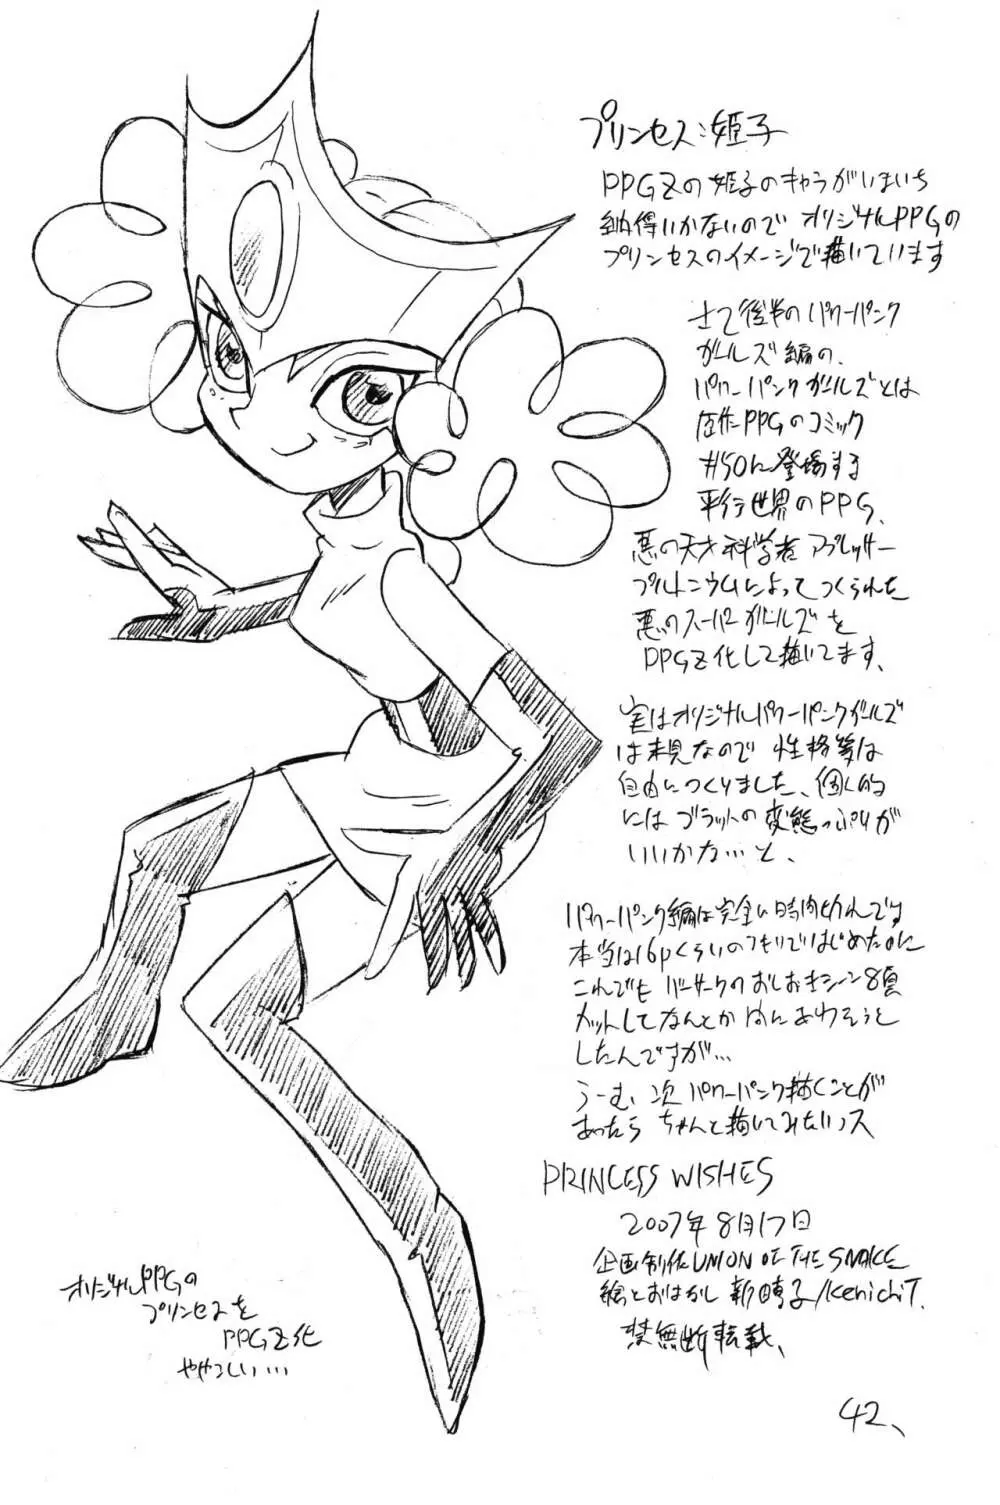 プリンセス:姫子
PPGZの姫子のキャラがいまいち
納得いかないので オリジナルPPGの
プリンセスのイメージで描いています
さて後半のパワーパンク
ガールズ編の、
パワーパンクガールズとは
原作PPGのコミック
#50に登場する
平行世界のPPG、
悪の天才科学者 アプレッサー
プルトニウムによってつくられた
悪のスーパーガールズを
PPGZ化して描いてます、
実はオリジナルパワーパンクガールズ
は未見なので 性格等は
自由につくりました、個人的
にはブラットの変態っぷりが
いいかな…と、
パワーパンク編は完全に時間切れです
本当は16pくらいのつもりではじめたのに
これでも バーサークのおしおきシーン8頁
カットしてなんとか 間にあわそうと
したんですが…
うーむ 次 パワーパンク描くことが
あったら ちゃんと描いてみたいっス
PRINCESS WISHES
2007年8月17日
企画制作 UNION OF THE SNAKE
絵とおはなし 新晴子/Kenichi T.
禁無断転載、
オリジナルPPGの
プリンセスを
PPGZ化
ややこしい…
42、